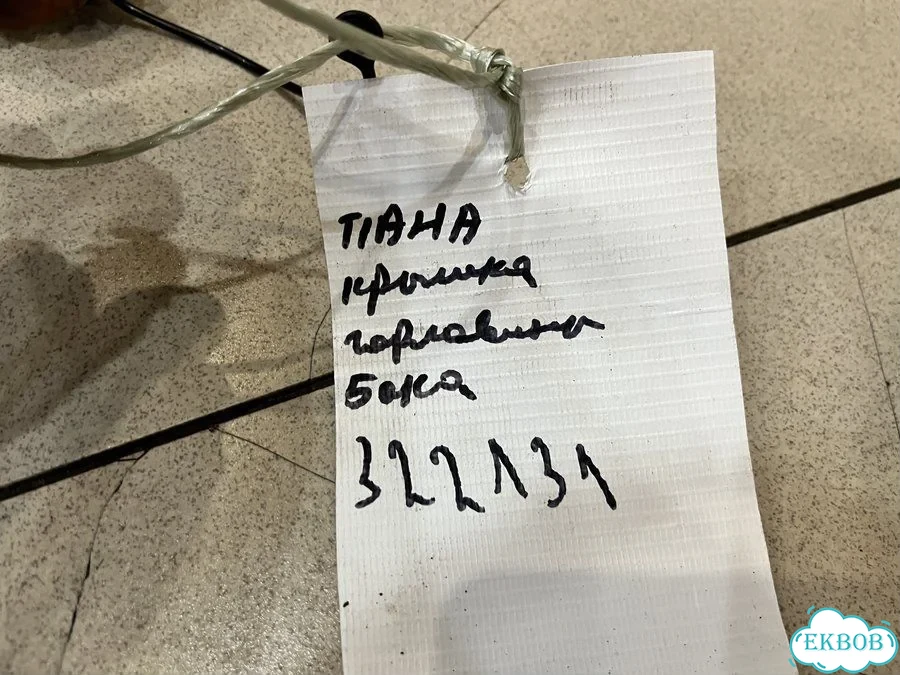 ТІАНА
крышка
горловины
бака
322131
EKBOB